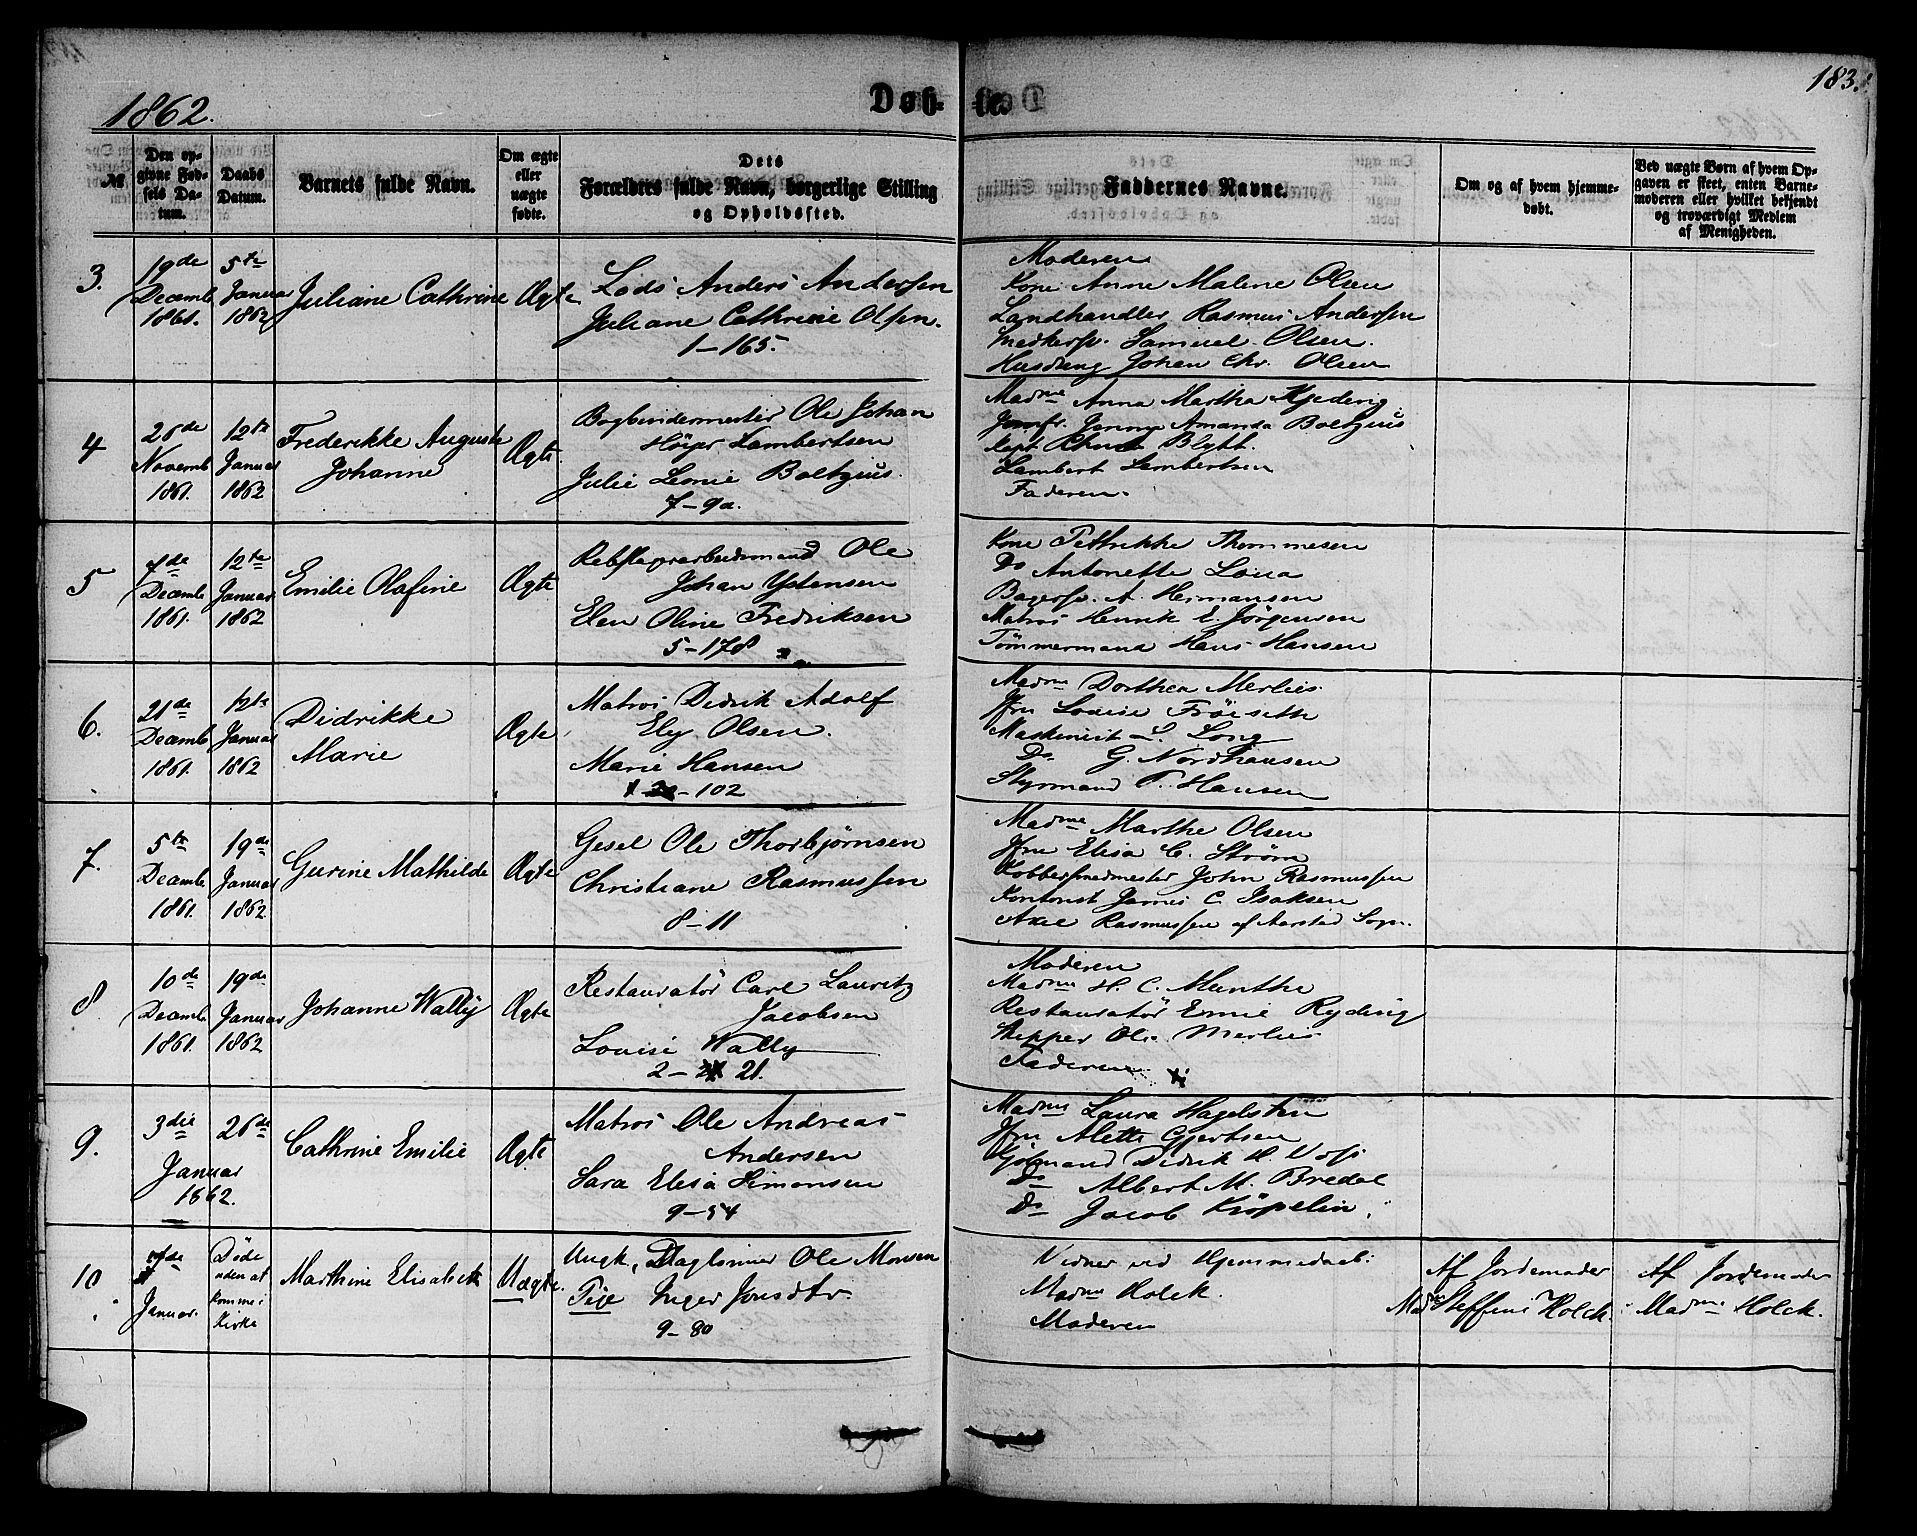 1862.
Døb-
te.
183.
№
Den op-
givne Fød-
sels Da-
tum.
Daabs
Datum.
Barnets fulde Navn.
Om ægte
eller
uægte
fødte.
Dets
Forældres fulde Navn, borgerlige Stilling
og Opholdssted.
Faddernes Navne.
Om og af hvem hjemme-
døbt.
Ved uægte Børn af hvem Op-
gaven er skeet, enten Barne-
moderen eller hvilket bekjendt
og troværdigt Medlem
af Menigheden.
3.
19de
Decemb
1861.
5te
Januar
1862
Juliane Cathrine
Ægte
Lods Anders Andersen
Juliane Cathrine Olsen.
1-165.
Moderen
Kone Anne Malene Olsen
Landhandler Rasmus Andersen
Samuel Olsen.
Johan Chr. Olsen
4
26de
Novemb
1861.
12te
Januar
1862
Frederikke Auguste
Johanne
Ægte
Bogbindermester Ole Johan
Lambertsen
Julie Leonie Boltzius.
7-9a.
Madme Anna Martha
Jomfr. Amanda Boltzius
Blytt.
Lambert Lambertsen
Faderen.
5
7de
Decemb
1861.
12te
Januar
1862
Emilie Olafine
Ægte
Ole
Johan Ystensen
Elen Oline Fredriksen
5-178
Kone Petrikke Thommesen
Do Antonette
A. Hermansen
Matros Henrik E. Jörgensen
Tömmermand Hans Hansen
6.
21de
Decemb
1861.
12te
Januar
1862
Didrikke
Marie
Ægte
Matros Didrik Adolf
Ely Olsen.
Marie Hansen
1-102
Madme Dorthea Merlies
Jfru Louise Fröiseth
Maskinist L. Long
Do G. Nordhausen
Styrmand T. Hansen
7.
5te
Decemb
1861.
19de
Januar
1862
Gurine Mathilde
Ægte
Gesel Ole Thorbjørnsen
Christiane Rasmussen
8-11
Madme Marthe Olsen
Jfru Elisa C. Strøm
Kobbersmedmester John Rasmussen
Kontorist James C. Isaksen
Axel Rasmussen af Aarstad Sogn.
8
10de
Decemb
1861.
19de
Januar
1862
Johanne Wally
Ægte
Restauratör Carl Lauritz
Jacobsen
Louise Wally
2-21.
Moderen
Madme H. C. Munthe
Restauratör Ryding
Skipper Ole Merlies
Faderen
9.
3die
Januar
1862.
26de
Cathrine Emilie
Ægte
Matros Ole Andreas
Andersen
Sara Elisa Simonsen
9-54
Madme Laura Hagelsten
Jfru Alette Gjertsen
Didrik H. Voss
Do Albert M. Bredal
Do Jacob Kröpelin.
10
7de
Januar.
Døde
uden at
komme i
Kirke
Marthine Elisabeth
Uægte.
Ungk, Dagleiner Ole Monsen
Pige Inger Jonsdtr.
9-80
Vidner ved Hjemmedaab:
Madme Holck.
Moderen
Af Jordemoder
Madme Steffine Holck.
Af Jordemoder
Madme Holck.